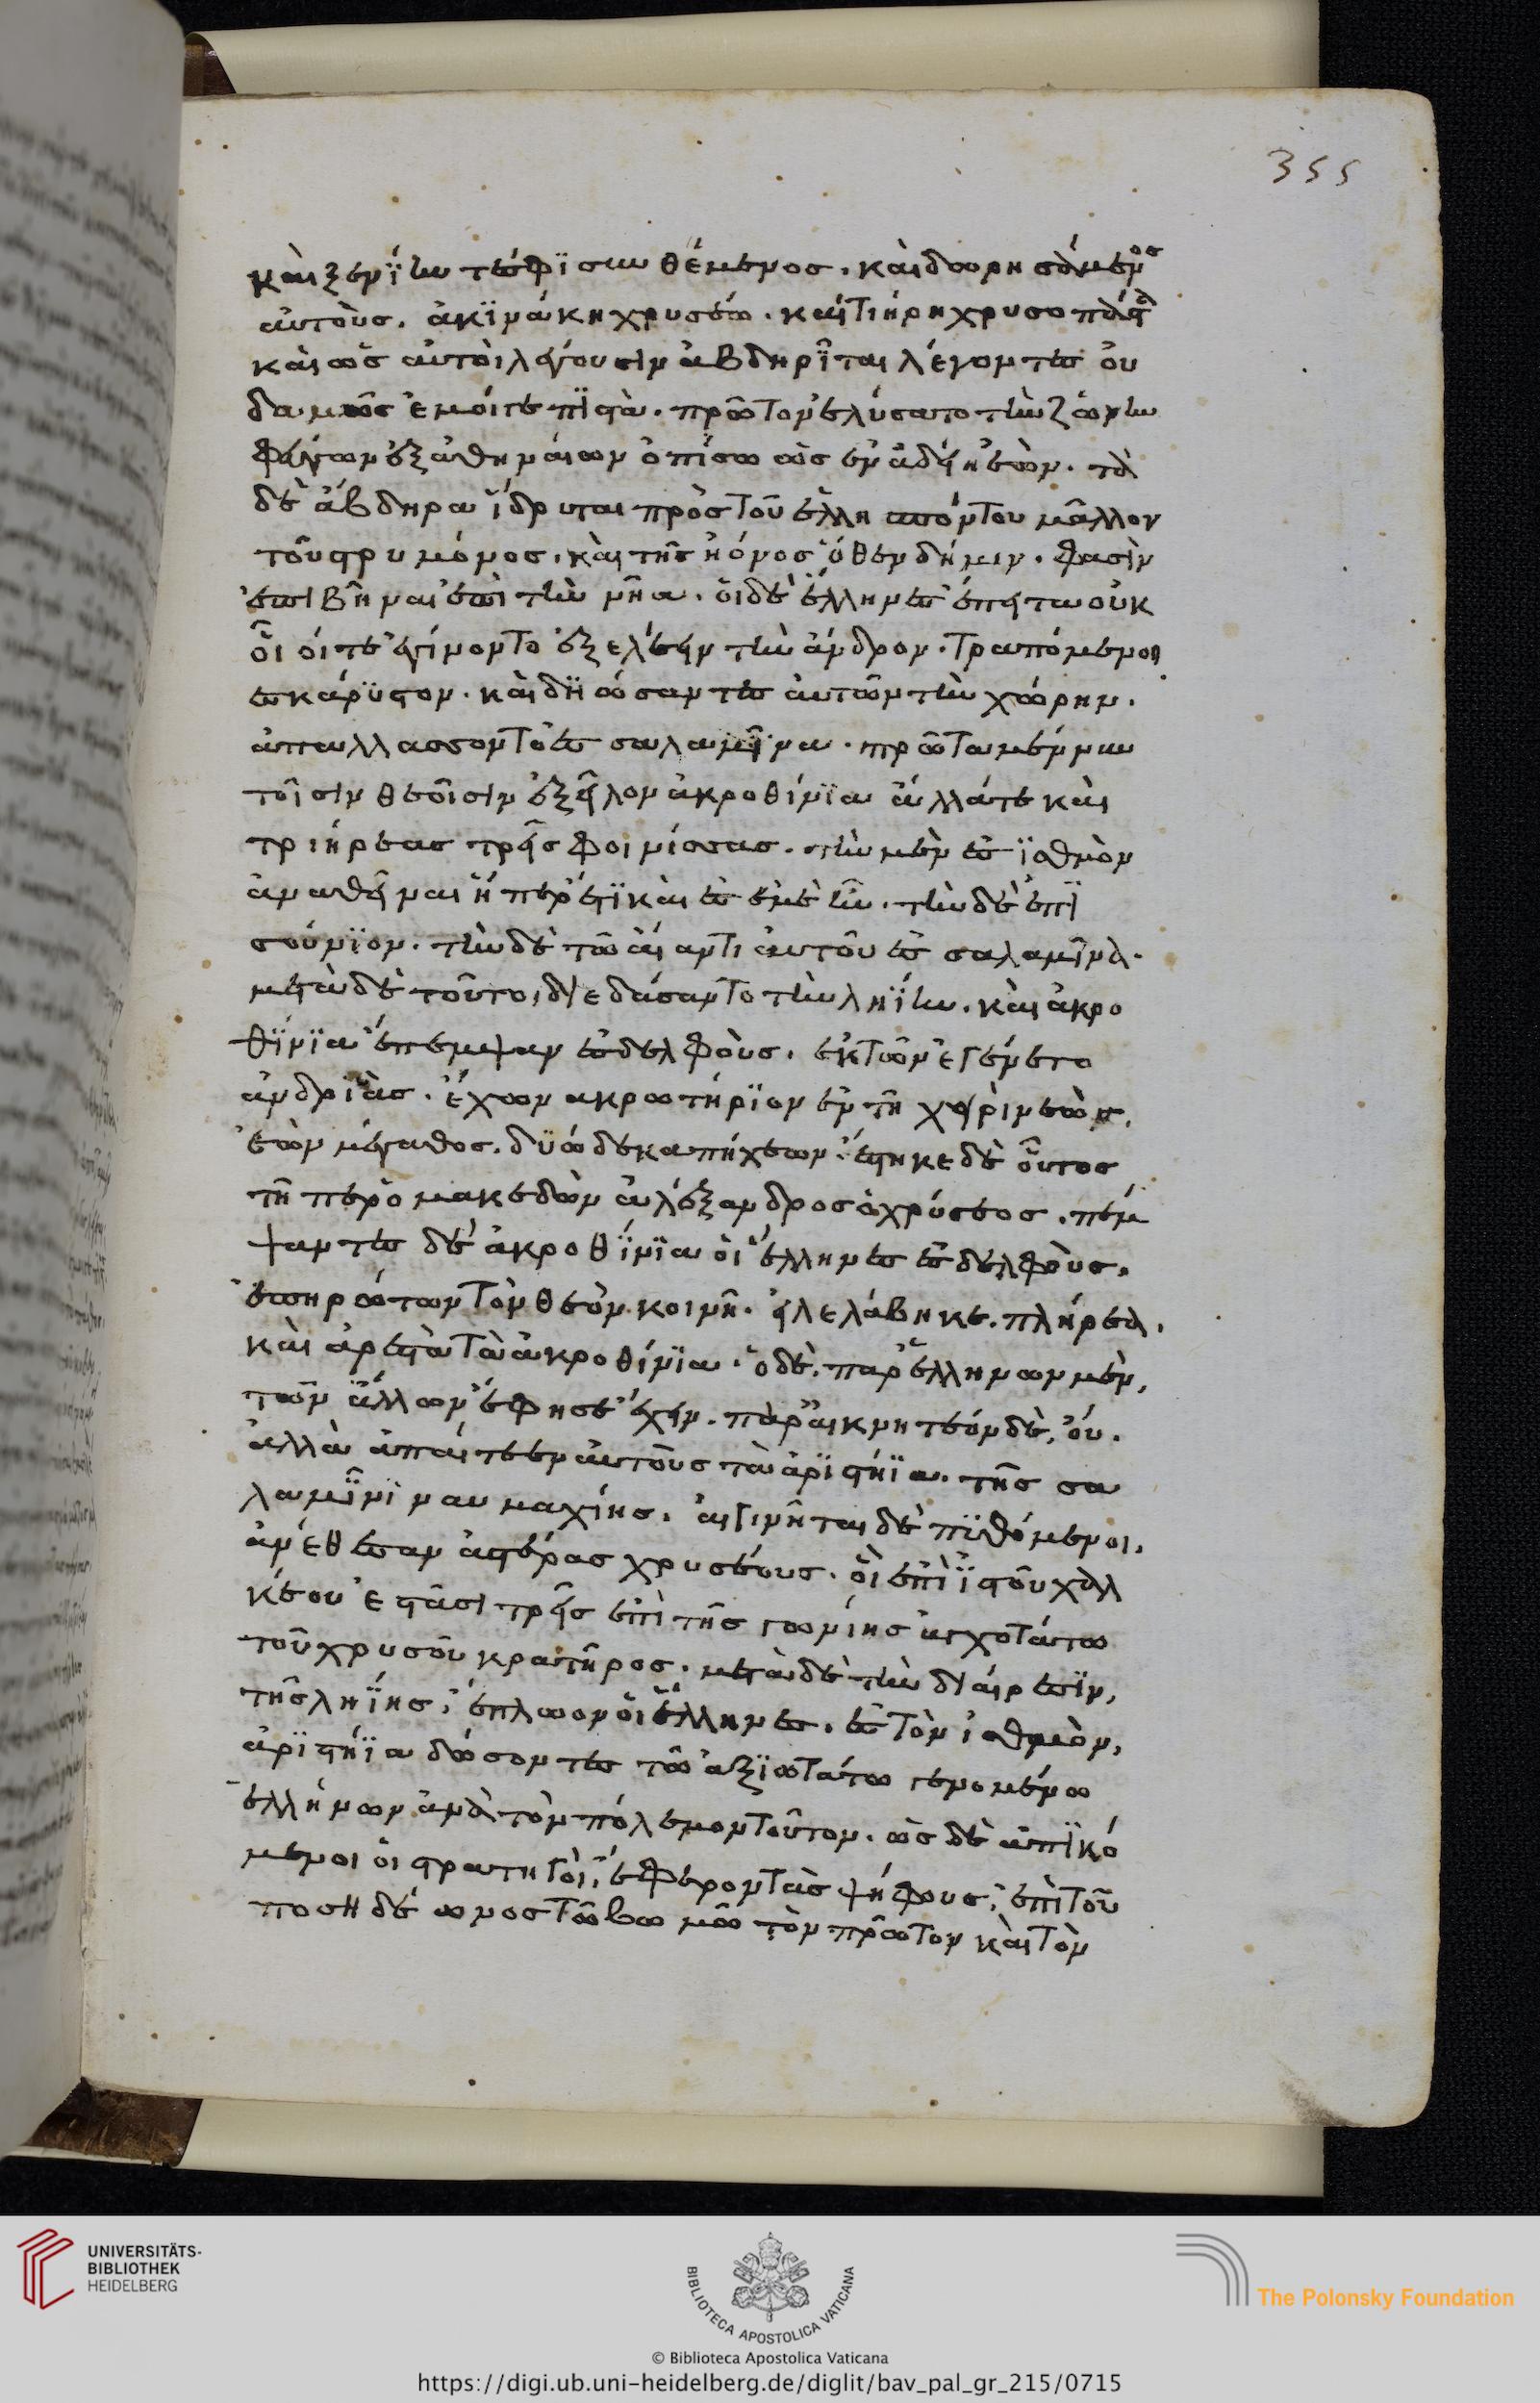 355
καὶ ξενΐην τέ σφϊ συνθέμενος. καὶ δωρησάμενος
αὐτοὺς. ἀκϊνάκη χρυσέω. καὶ τιήρη χρυσοπάστω
καὶ ὡς αὐτοὶ λέγουσιν ἀβδηρῖται λέγοντες οὐ
δαμῶς ἔμοιγε πϊστὰ. πρῶτον ἐλύσατο τὴν ζώνην
φεύγων ἐξ ἀθηναίων ὀπίσω ὡς ἐν ἀδείη ἐὼν. τὰ
δὲ ἄβδηρα ἵδρυται πρὸς τοῦ ἑλλησπόντου μᾶλλον
τοῦ στρυμόνος. καὶ τῆς ἠόνος ὅθεν δή μιν. φασὶν
ἐπιβῆναι ἐπὶ τὴν νῆα. οἱ δὲ ἕλληνες ἐπείτε οὐκ
οἷοί τε ἐγίνοντο ἐξελέειν τὴν ἄνδρον. τραπόμενοι
ἐς κάρϋστον. καὶ δηϊώσαντες αὐτῶν τὴν χώρην.
ἀπαλλάσσοντο ἐς σαλαμῖνα. πρῶτα μέν νυν
τοῖσιν θεοῖσιν ἐξεῖλον ἀκροθίνϊα ἄλλά τε καὶ
τριήρεας τρεῖς φοινίσσας. τὴν μὲν ἐς ϊσθμὸν
ἀναθεῖναι ἥπερ ἔτϊ καὶ ἐς ἐμὲ ἦν. τὴν δὲ ἐπὶ
σούνϊον. τὴν δὲ τῶ αἴαντι αὐτοῦ ἐς σαλαμῖνα.
μετὰ δὲ τοῦτο, διεδάσαντο τὴν ληΐην. καὶ ἀκρο
θίνϊα ἔπεμψαν ἐς δελφοὺς. ἐκ τῶν ἐγένετο
ἀνδριὰς. ἔχων ἀκρωτήρϊον ἐν τῆ χειρὶ νεὼς.
ἐὼν μέγαθος. δυώδεκα πήχεων. ἕστηκε δὲ οὗτος
τῆ περ ὁ μακεδὼν ἀλέξανδρος ὁ χρύσεος. πέμ
ψαντες δὲ ἀκροθίνϊα οἱ ἕλληνες ἐς δελφοὺς,
ἐπηρώτων τὸν θεὸν κοινῆ. εἰ λελάβηκε. πλήρεα.
καὶ ἀρεστὰ τὰ ἀκροθίνϊα. ὁ δὲ. παρ ἑλλήνων μὲν,
τῶν ἄλλων ἔφησε ἔχειν. παρ αἰκινητέων δὲ, οὔ.
ἀλλὰ ἀπαίτεεν αὐτοὺς τὰ ἀρϊστήϊα. τῆς σα
λαμῖνϊ ναυμαχίης. αἰγινῆται δὲ πϋθόμενοι.
ἀνέθεσαν ἀστέρας χρυσέους. οἳ ἐπὶ ϊστοῦ χαλ
κέου ἑστᾶσι τρεῖς ἐπὶ τῆς γωνίης ἀγχοτάτω
τοῦ χρυσοῦ κρατῆρος. μετὰ δὲ τὴν διαίρεσϊν,
τῆς ληΐης, ἔπλωον οἱ ἕλληνες. ἐς τὸν ἰσθμὸν,
ἀρϊστήϊα δώσοντες τῶ ἀξϊωτάτω γενομένω
ἑλλήνων ἀνὰ τὸν πόλεμον τοῦτον. ὡς δὲ ἀπϊκό
μενοι οἱ στρατηγοὶ, ἔφερον τὰς ψήφους, ἐπὶ τοῦ
ποσηδέωνος τῶ βωμῶ τὸν πρῶτον καὶ τὸν
UNIVERSITÄTS-
BIBLIOTHEK
HEIDELBERG
BIBLIOTECA APOSTOLICA VATICANA
The Polonsky Foundation
© Biblioteca Apostolica Vaticana
https://digi.ub.uni-heidelberg.de/diglit/bav_pal_gr_215/0715